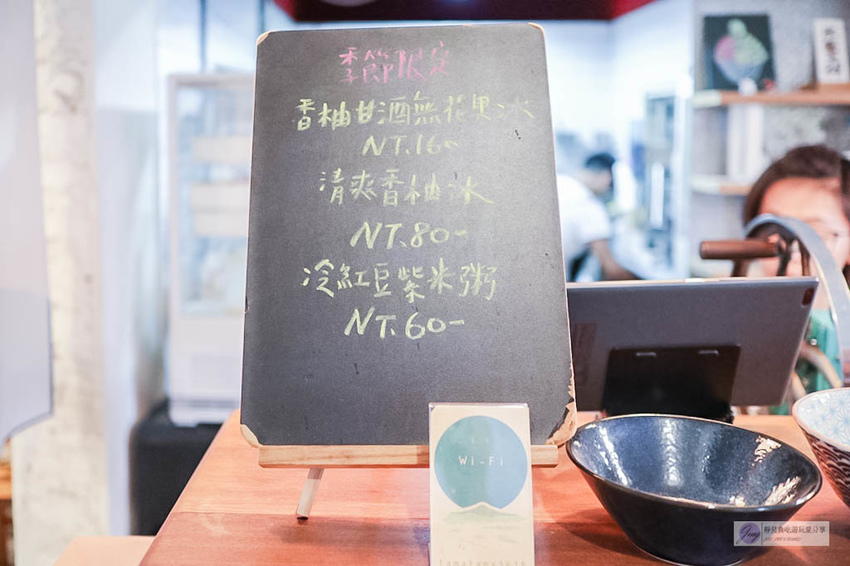 季節限定
香柚甘酒無花果冰
NT.160-
清爽香柚冰
NT.80-
冷紅豆紫米粥
NT.60-
Wi-Fi
靜兒食吃遊玩愛分享